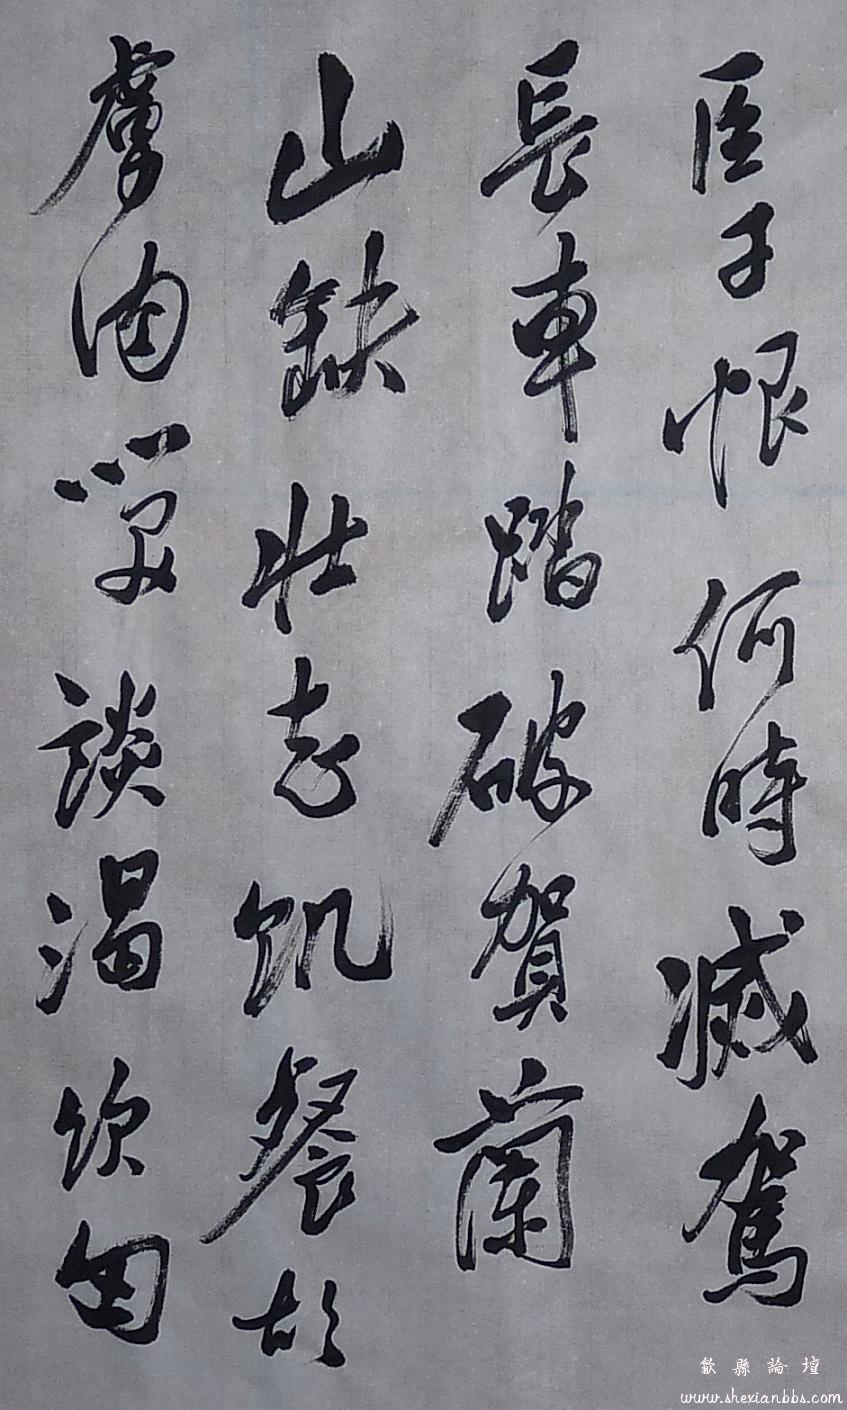 臣子恨何時滅駕
長車踏破賀蘭
山缺壯志飢餐胡
虜肉笑談渴飲匈
歙縣論壇
www.shexianbbs.com